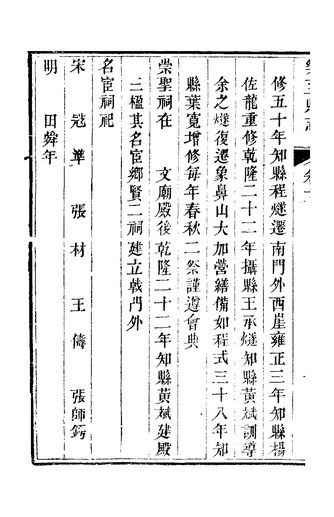 修五十年知縣程燧遷南門外西崖雍正三年知縣楊
佐龍重修乾隆二十二年攝縣王承燧知縣黃斌訓導
余之燧復遷象鼻山大加營繕備如程式三十八年知
縣葉寬增修每年春秋二祭謹遵會典
崇聖祠在 文廟殿後乾隆二十二年知縣黃斌建殿
三楹其名宦鄉賢二祠建立戟門外
名宦祠祀
宋 寇準 張材 王儔 張師錫
明 田舜年